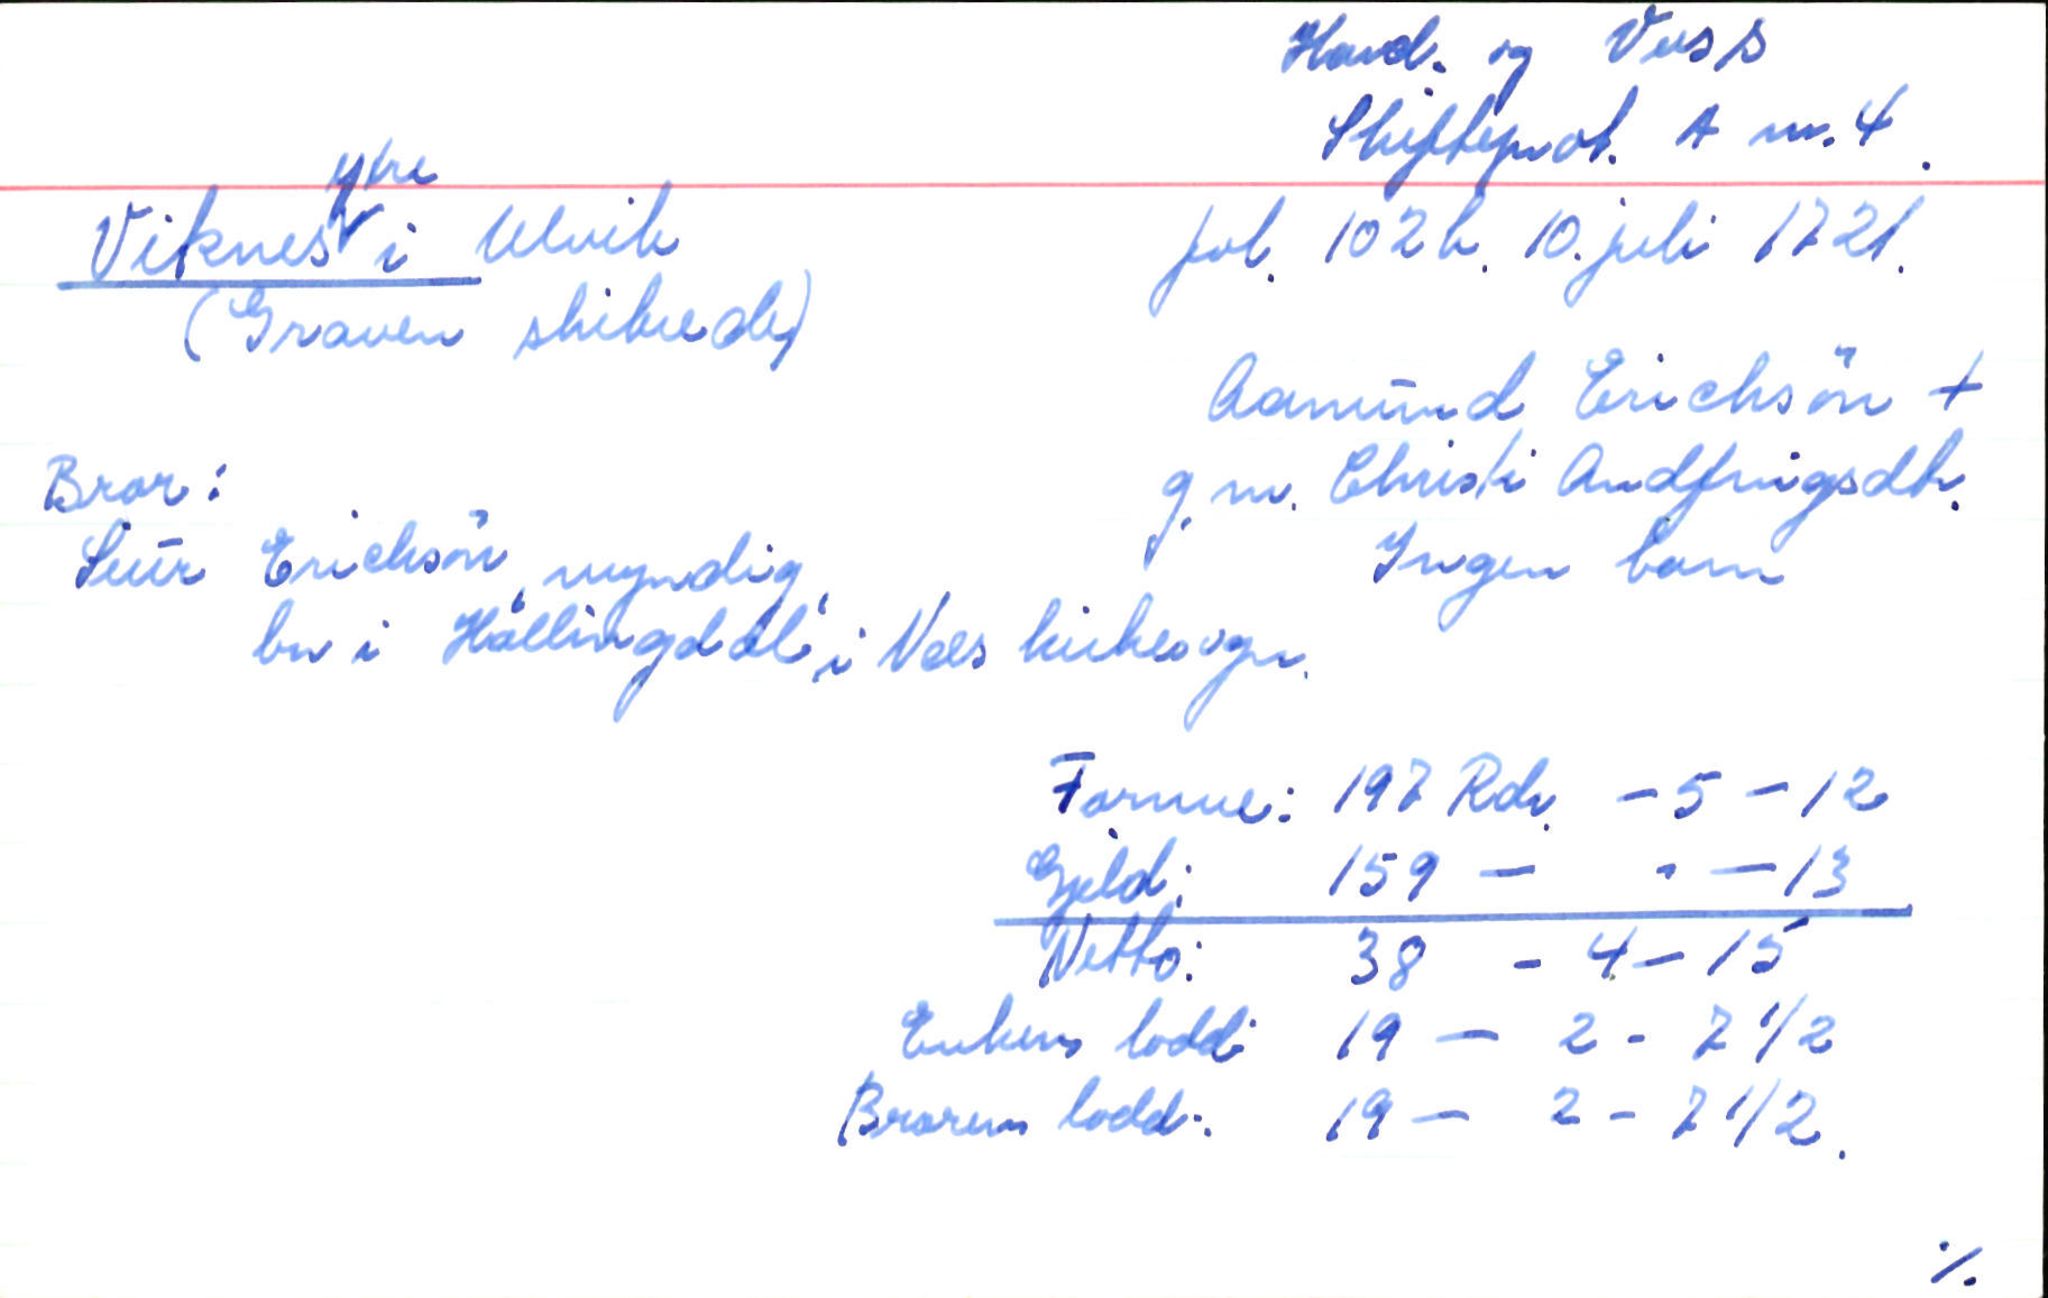 Hard. og Voss
Skifteprot. A nr. 4.
ytre
Viknes i Ulvik
fol. 102 b. 10. juli 1721.
(Graven skibrede)
Aamund Erichsön +
g. m. Christi Andfinigsdtr.
Ingen barn
Bror:
Siur Erichsön, myndig,
bor i "Hallingdal", i Næs kirkesogn.
Formue: 197 Rdr. - 5 - 12
Gjeld: 159 - " - 13
Netto: 38 - 4 - 15
Enkens lodd: 19 - 2 - 7 1/2
Brorens lodd: 19 - 2 - 7 1/2.
./.